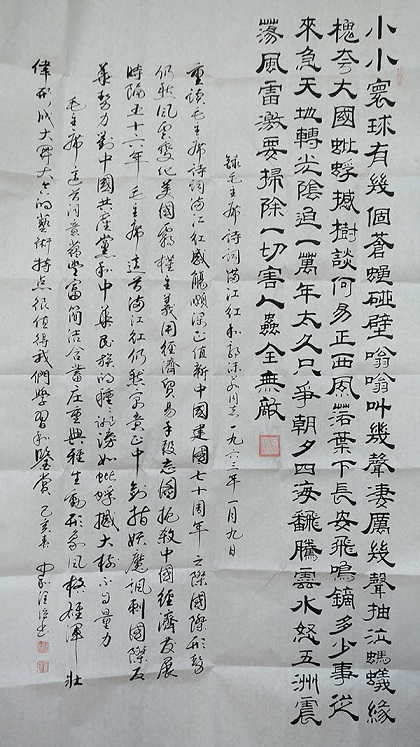 小小寰球有幾個蒼蠅碰壁嗡嗡叫幾聲凄厲幾聲抽泣螞蟻緣
槐夸大國蚍蜉撼樹談何易正西風落葉下長安飛鳴鏑多少事從
來急天地轉光陰迫一萬年太久只爭朝夕四海翻騰雲水怒五洲震
蕩風雷激要掃除一切害人蟲全無敵
錄毛主席詩詞滿江紅和郭沫若同志一九六三年一月九日
重讀毛主席詩詞滿江紅感觸頗深正值新中國建國七十周年之際國際形勢
仍然風雲變化美國霸權主義用經濟貿易手段圖扼殺中國經濟發展
時隔五十六年毛主席這首滿江紅仍然正中劍指妖魔諷刺國際反
華勢力對中國共產黨和中華民族的種種如蚍蜉撼大樹不自量力
毛主席這首詞意蘊豐富簡潔含蓄莊重典雅生動形象風格雄渾壯
偉形成大開大合的藝術特點很值得我們學習和鑒賞己亥春書